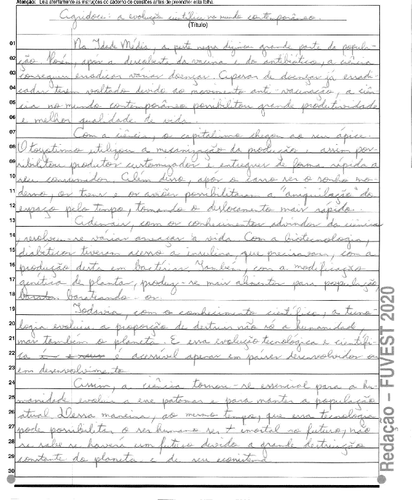 Atenção: Leia atentamente as instruções do caderno de questões antes de preencher esta folha.
a evolução científica no mundo contemporâneo
(Título)
01 Na Idade Média, a peste negra grande parte da popula-
02 ção. Porém, após a descoberta da vacina e do antibiótico, a ciência
03 conseguiu erradicar várias doenças. Apesar de doenças já erradi-
04 cadas terem voltado devido ao movimento anti-vacinação, a ciên-
05 cia no mundo contemporâneo possibilitou grande produtividade
06 e melhor qualidade de vida.
07 Com a ciência, o capitalismo chegou ao seu ápice.
08 O toyotismo utilizou a mecanização da produção assim pos-
09 sibilitou produtos customizados e entregues de forma rápida a
10 seu consumidor. Além disso, após o carro ser o sonho mo-
11 derno, os trens e os aviões possibilitaram a "aniquilação" do
12 espaço pelo tempo, tornando o deslocamento mais rápido.
13 com os conhecimentos advindos da ciência
14 várias à vida. Com a biotecnologia,
15 diabéticos tiveram acesso a insulina, que precisavam, com a
16 produção desta em bactérias. Também, com a modificação
17 genética de plantas, produz-se mais alimentos para população
18 barateando-os.
19 Todavia, com o conhecimento científico, a tecno-
20 logia evoluiu a proporção de destruir não só a humanidade,
21 mas também o planeta. E essa evolução tecnológica e científi-
22 ca é acessível apenas em países desenvolvidos ou
23 em desenvolvimento.
24 Assim, a ciência tornou-se essencial para a hu-
25 manidade evoluir a esse patamar e para manter a população
26 atual. Dessa maneira, ao mesmo tempo, que essa tecnologia
27 pode possibilitar o ser humano ser + no futuro, não
28 se sabe se haverá um futuro devido a grande destruição
29 constante do planeta e de seu ecossistema.
30
Redação – FUVEST 2020